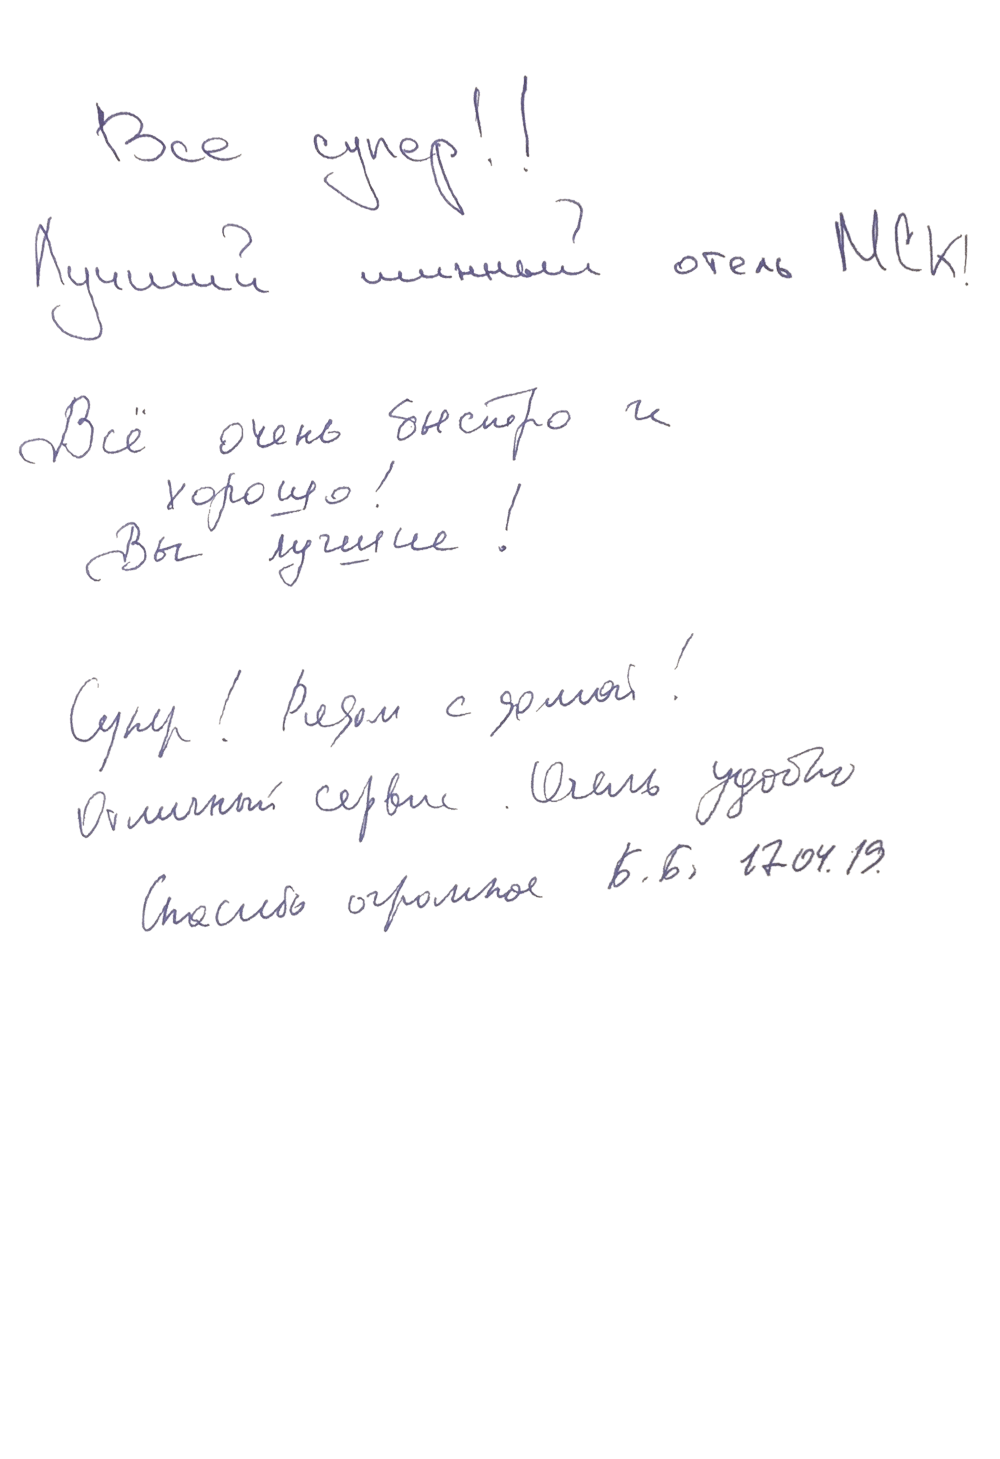 Все супер!!
Лучший шинный отель МСК!
Всё очень быстро и
хорошо!
Вы лучшие!
Супер! Рядом с домом!
Отличный сервис. Очень удобно
Спасибо огромное Б.Б. 17.04.19.